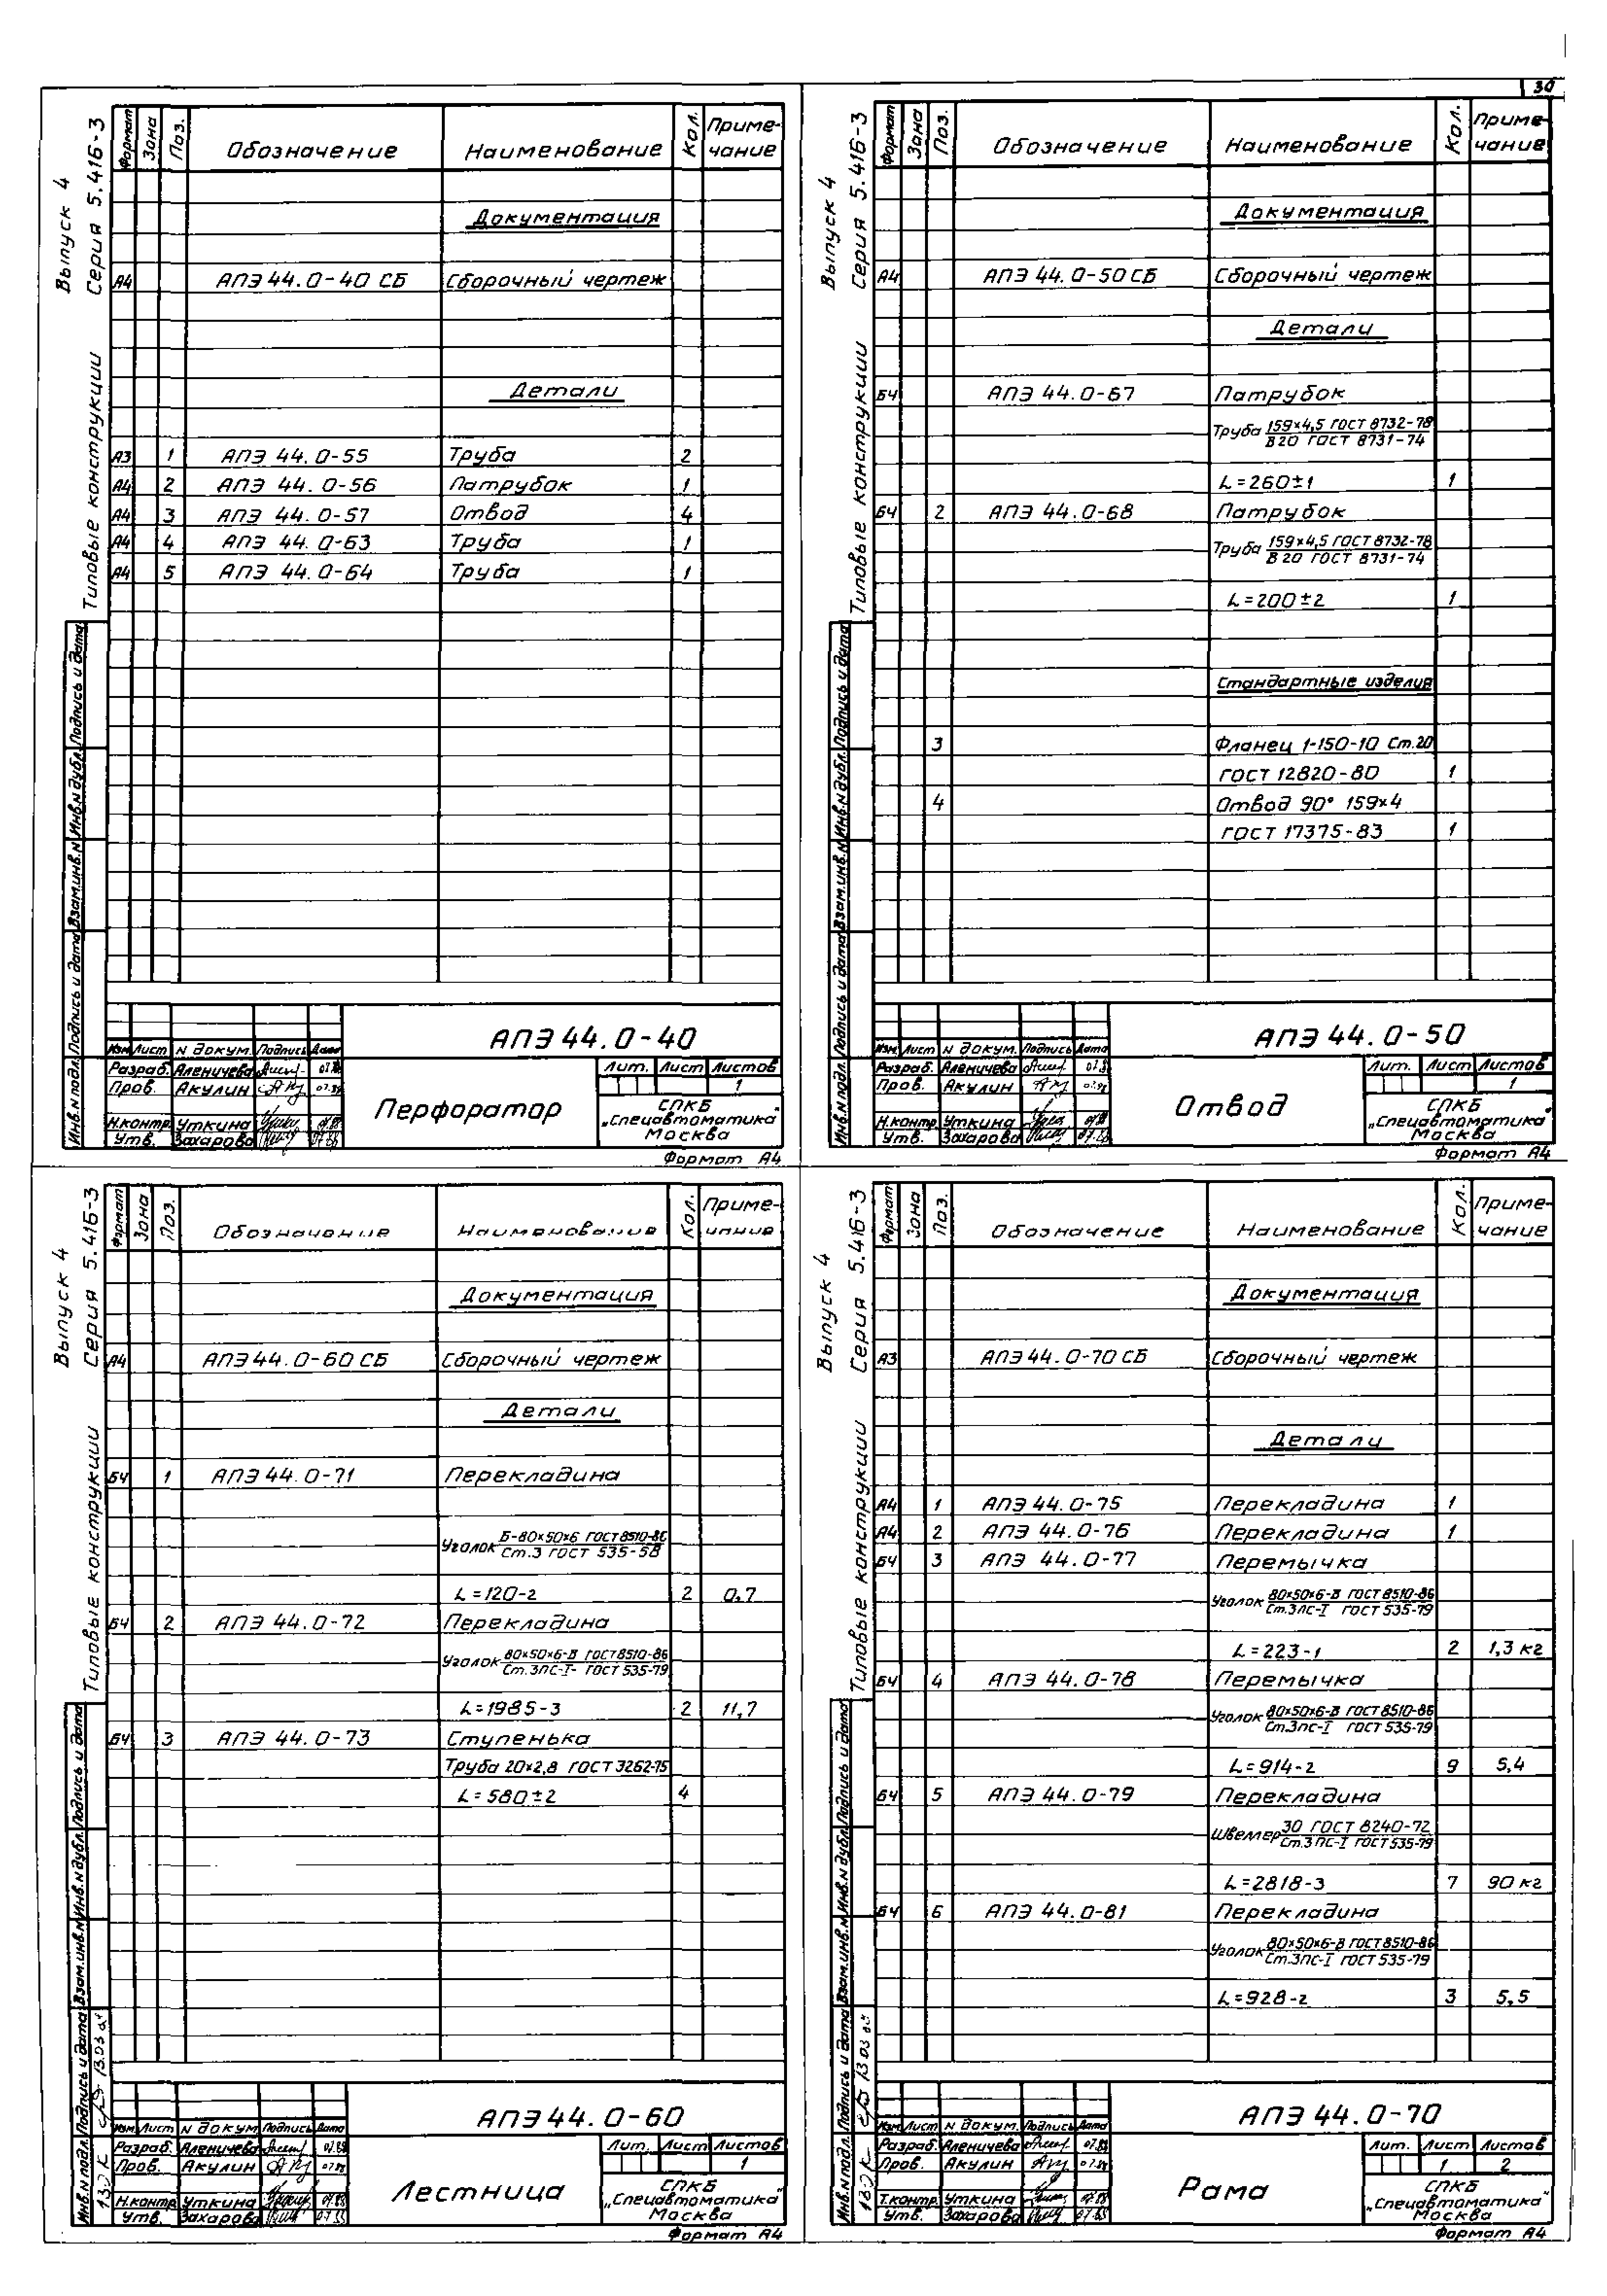 30
Выпуск 4
Типовые конструкции Серия 5.416-3
Формат Зона Поз. Обозначение Наименование Кол. Приме-
чание
Документация
А4 АПЭ 44.0-40 СБ Сборочный чертеж
Детали
А3 1 АПЭ 44.0-55 Труба 2
А4 2 АПЭ 44.0-56 Патрубок 1
А4 3 АПЭ 44.0-57 Отвод 4
А4 4 АПЭ 44.0-63 Труба 1
А4 5 АПЭ 44.0-64 Труба 1
Инв.N подл. Подпись и дата Взам.инв.N Инв.N дубл. Подпись и дата
АПЭ 44.0-40
Изм. Лист N докум. Подпись Дата
Разраб. Аленичева
Пров. Акулин
Н.контр. Уткина
Утв. Захарова
Перфоратор
Лит. Лист Листов
1
СПКБ
„Спецавтоматика"
Москва
Формат А4
Выпуск 4
Типовые конструкции Серия 5.416-3
Формат Зона Поз. Обозначение Наименование Кол. Приме-
чание
Документация
А4 АПЭ 44.0-50 СБ Сборочный чертеж
Детали
БЧ АПЭ 44.0-67 Патрубок
Труба 159×4,5 ГОСТ 8732-78
В 20 ГОСТ 8731-74
L=260±1 1
БЧ 2 АПЭ 44.0-68 Патрубок
Труба 159×4,5 ГОСТ 8732-78
В 20 ГОСТ 8731-74
L=200±2 1
Стандартные изделия
3 Фланец 1-150-10 Ст.20
ГОСТ 12820-80 1
4 Отвод 90° 159×4
ГОСТ 17375-83 1
Инв.N подл. Подпись и дата Взам.инв.N Инв.N дубл. Подпись и дата
АПЭ 44.0-50
Изм. Лист N докум. Подпись Дата
Разраб. Аленичева
Пров. Акулин
Н.контр. Уткина
Утв. Захарова
Отвод
Лит. Лист Листов
1
СПКБ
„Спецавтоматика"
Москва
Формат А4
Выпуск 4
Типовые конструкции Серия 5.416-3
Формат Зона Поз. Обозначение Наименование Кол. Приме-
чание
Документация
А4 АПЭ 44.0-60 СБ Сборочный чертеж
Детали
БЧ 1 АПЭ 44.0-71 Перекладина
Уголок Б-80×50×6 ГОСТ 8510-86
Ст.3 ГОСТ 535-58
L=120-2 2 0,7
БЧ 2 АПЭ 44.0-72 Перекладина
Уголок 80×50×6-В ГОСТ 8510-86
Ст.3ПС-I- ГОСТ 535-79
L=1985-3 2 11,7
БЧ 3 АПЭ 44.0-73 Ступенька
Труба 20×2,8 ГОСТ 3262-75
L=580±2 4
Инв.N подл. Подпись и дата Взам.инв.N Инв.N дубл. Подпись и дата
АПЭ 44.0-60
Изм. Лист N докум. Подпись Дата
Разраб. Аленичева
Пров. Акулин
Н.контр. Уткина
Утв. Захарова
Лестница
Лит. Лист Листов
1
СПКБ
„Спецавтоматика"
Москва
Формат А4
Выпуск 4
Типовые конструкции Серия 5.416-3
Формат Зона Поз. Обозначение Наименование Кол. Приме-
чание
Документация
А3 АПЭ 44.0-70 СБ Сборочный чертеж
Детали
А4 1 АПЭ 44.0-75 Перекладина 1
А4 2 АПЭ 44.0-76 Перекладина 1
БЧ 3 АПЭ 44.0-77 Перемычка
Уголок 80×50×6-В ГОСТ 8510-86
Ст.3ПС-I ГОСТ 535-79
L=223-1 2 1,3 кг
БЧ 4 АПЭ 44.0-78 Перемычка
Уголок 80×50×6-В ГОСТ 8510-86
Ст.3ПС-I ГОСТ 535-79
L=914-2 9 5,4
БЧ 5 АПЭ 44.0-79 Перекладина
Швеллер 30 ГОСТ 8240-72
Ст.3ПС-I ГОСТ 535-79
L=2818-3 7 90 кг
БЧ 6 АПЭ 44.0-81 Перекладина
Уголок 80×50×6-В ГОСТ 8510-86
Ст.3ПС-I ГОСТ 535-79
L=928-2 3 5,5
Инв.N подл. Подпись и дата Взам.инв.N Инв.N дубл. Подпись и дата
АПЭ 44.0-70
Изм. Лист N докум. Подпись Дата
Разраб. Аленичева
Пров. Акулин
Т.контр. Уткина
Утв. Захарова
Рама
Лит. Лист Листов
1 2
СПКБ
„Спецавтоматика"
Москва
Формат А4